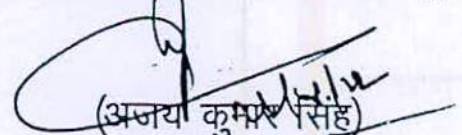 (अजय कुमार सिंह)